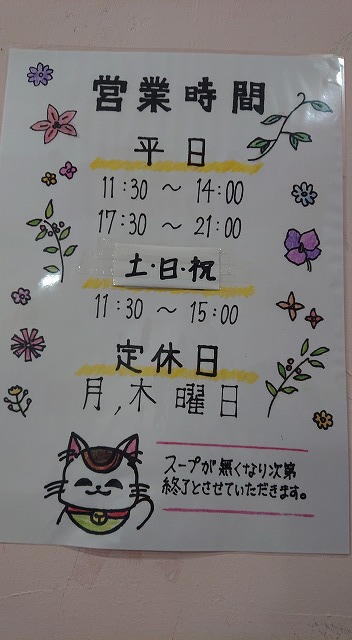 営業時間
平日
11:30 ~ 14:00
17:30 ~ 21:00
土・日・祝
11:30 ~ 15:00
定休日
月,木曜日
スープが無くなり次第
終了とさせていただきます。